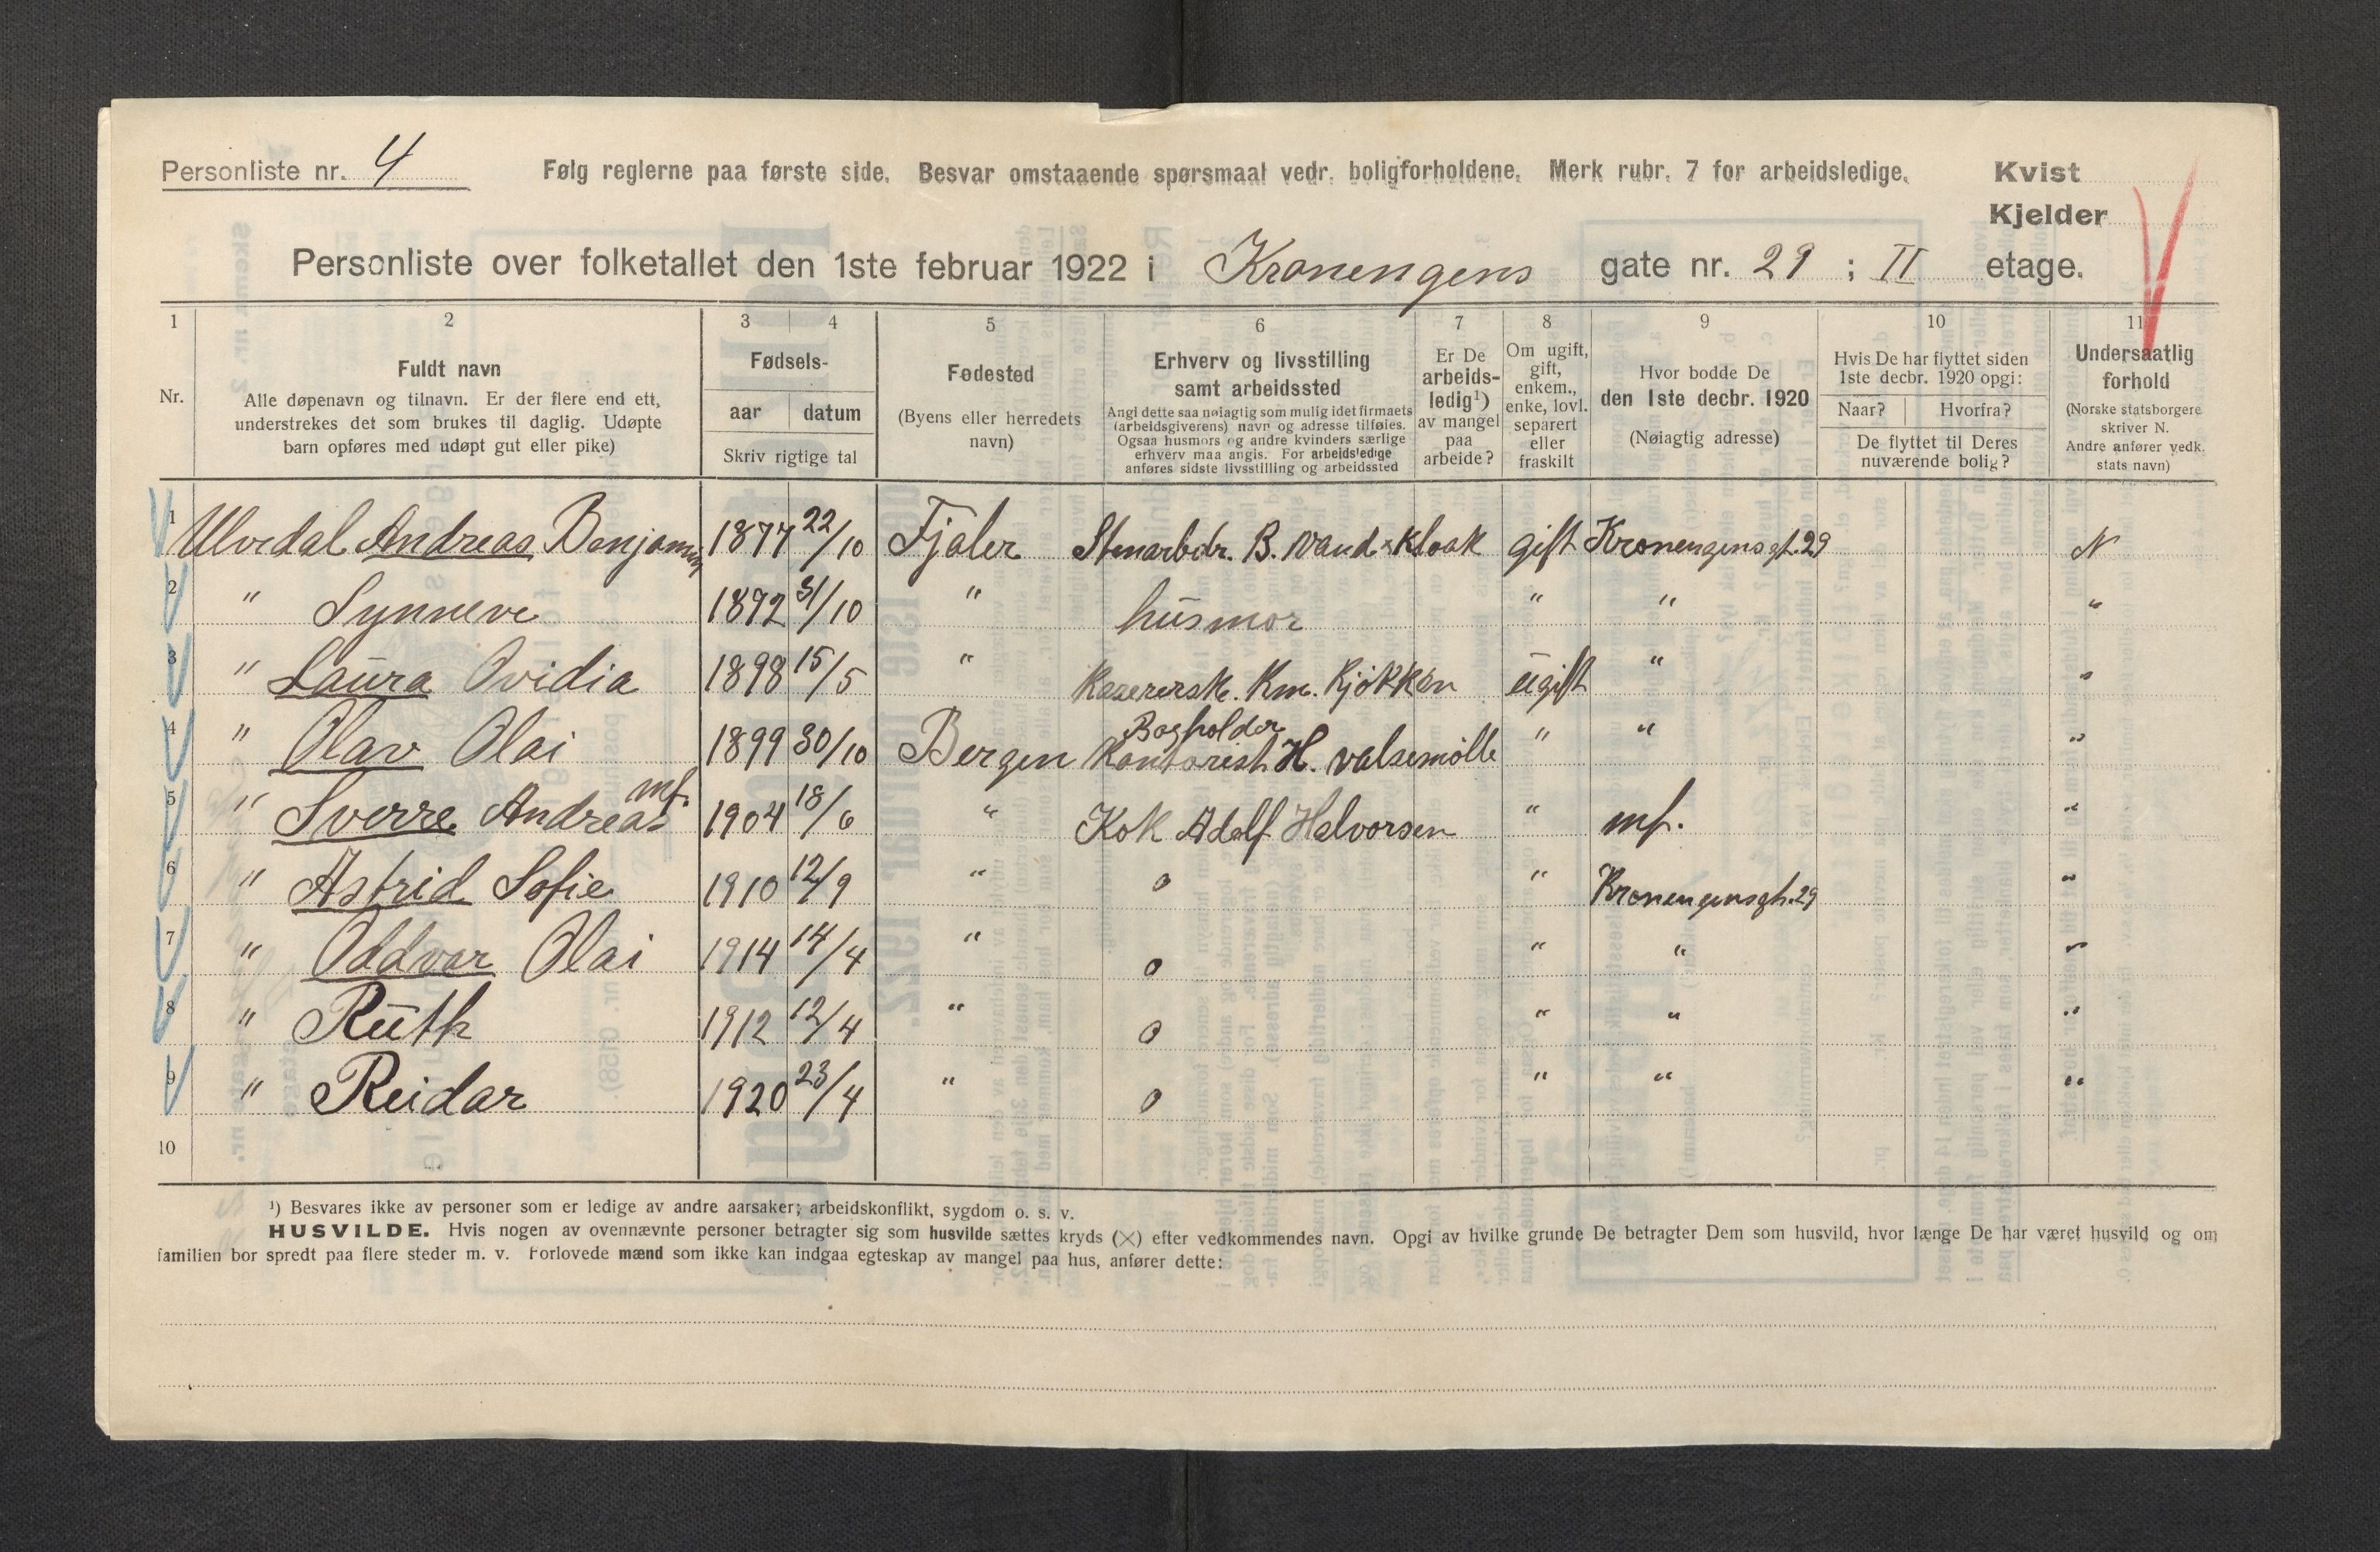 Personliste nr. 4 Følg reglerne paa første side. Besvar omstaaende spørsmaal vedr. boligforholdene. Merk rubr. 7 for arbeidsledige. Kvist
Kjelder
Personliste over folketallet den 1ste februar 1922 i Kronengens gate nr. 29 ; II etage.
1 2 3 4 5 6 7 8 9 10 11
Nr.
Fuldt navn
Alle døpenavn og tilnavn. Er der flere end ett,
understrekes det som brukes til daglig. Udøpte
barn opføres med udøpt gut eller pike)
Fødsels-
aar datum
Skriv rigtige tal
Fødested
(Byens eller herredets
navn)
Erhverv og livsstilling
samt arbeidssted
Angi dette saa nøiagtig som mulig idet firmaets
(arbeidsgiverens) navn og adresse tilføies.
Ogsaa husmors og andre kvinders særlige
erhverv maa angis. For arbeidsledige
anføres sidste livsstilling og arbeidssted
Er De
arbeids-
ledig¹)
av mangel
paa
arbeide?
Om ugift,
gift,
enkem.,
enke, lovl.
separert
eller
fraskilt
Hvor bodde De
den 1ste decbr. 1920
(Nøiagtig adresse)
Hvis De har flyttet siden
1ste decbr. 1920 opgi:
Naar? Hvorfra?
De flyttet til Deres
nuværende bolig?
Undersaatlig
forhold
(Norske statsborgere
skriver N.
Andre anfører vedk.
stats navn)
1 Ulvedal Andreas Benjamin 1877 22/10 Fjaler Stenarbdr. B. Vand & Kloak gift Kronengensgt. 29 N
2 " Synneve 1892 31/10 " husmor " " "
3 " Laura Ovidia 1898 15/5 " Kasererske. Km. Kjøkken ugift " "
Bogholder
4 " Olav Olai 1899 30/10 Bergen Kontorist H. valsemølle " " "
5 " Sverre Andreas mf. 1904 18/6 " Kok Adolf Halvorsen " mf. "
6 " Astrid Sofie 1910 12/9 " 0 " Kronengensgt. 29 "
7 " Oddvar Olai 1914 14/4 " 0 " " "
8 " Ruth 1912 12/4 " 0 " " "
9 " Reidar 1920 23/4 " 0 " " "
10
¹) Besvares ikke av personer som er ledige av andre aarsaker; arbeidskonflikt, sygdom o. s. v.
HUSVILDE. Hvis nogen av ovennævnte personer betragter sig som husvilde sættes kryds (×) efter vedkommendes navn. Opgi av hvilke grunde De betragter Dem som husvild, hvor længe De har været husvild og om
familien bor spredt paa flere steder m. v. Forlovede mænd som ikke kan indgaa egteskap av mangel paa hus, anfører dette: